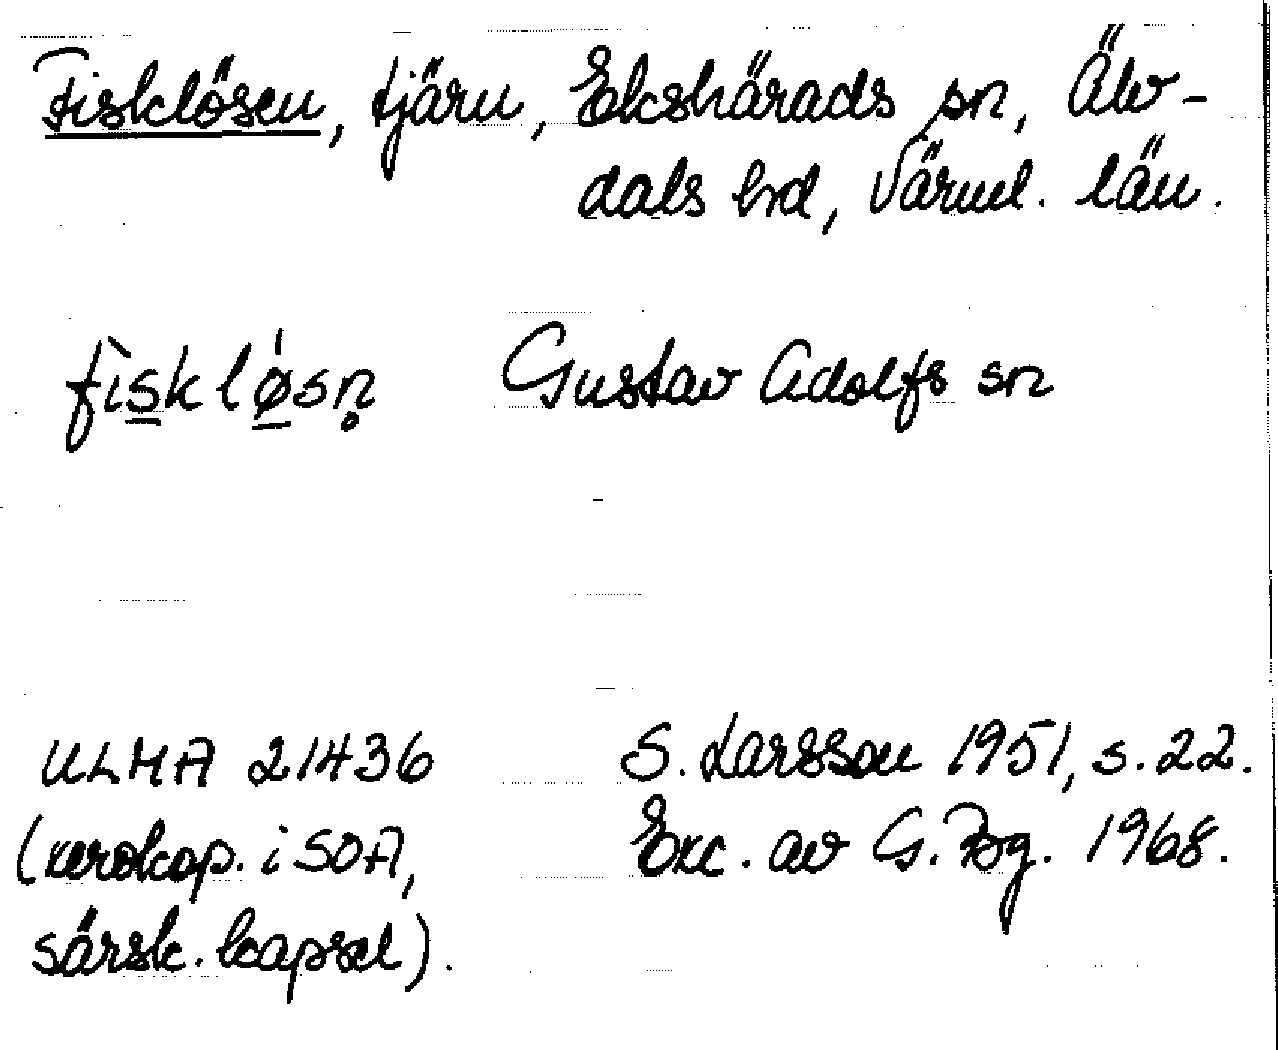 Fisklösen, tjärn, Ekshärads sn, Älv-
dals hd, Värml. län.
fìskló̱sn̥ Gustav Adolfs sn
ULMA 21436 S. Larsson 1951, s. 22.
(xerokop. i SOA, Exc. av G. Bg. 1968.
särsk. kapsel).